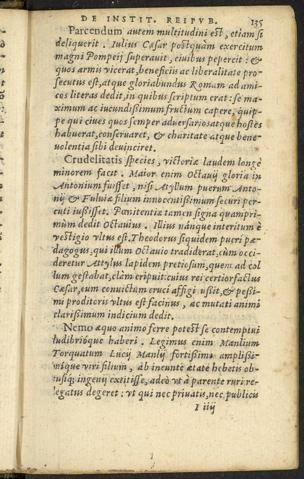 DE INSTIT. REIPVB. 135
Parcendum autem multitudini est, etiam si
deliquerit. Iulius Cæsar postquam exercitum
magni Pompeij superauit, ciuibus pepercit: &
quos armis vicerat, beneficiis ac liberalitate pro-
secutus est, atque gloriabundus Romam ad ami-
cos literas dedit, in quibus scriptum erat: se ma-
ximum ac iucundissimum fructum capere, quip-
pe qui ciues quos semper aduersarios atque hostes
habuerat, conseruaret, & charitate atque bene-
uolentia sibi deuinciret.
Crudelitatis species, victoriæ laudem longè
minorem facit. Maior enim Octauij gloria in
Antonium fuisset, nisi Atyllum puerum Anto-
nij & Fuluiæ filium innocentissimum securi per-
cuti iussisset. Pœnitentiæ tamen signa quampri-
mùm dedit Octauius. Illius nanque interitum è
vestigio vltus est, Theodorus siquidem pueri pæ-
dagogus, qui illum Octauio tradiderat, cùm occi-
deretur Attylus lapidem pretiosum, quem ad col
lum gestabat, clàm eripuit: cuius rei certior factus
Cæsar, eum conuictum cruci affigi iussit, & pessi-
mi proditoris vltus est facinus, ac mutati animi
clarissimum indicium dedit.
Nemo æquo animo ferre potest se contemptui
ludibrióque haberi. Legimus enim Manlium
Torquatum Lucij Manlij fortissimi amplissi-
mique viri filium, ab ineunte ætate hebetis ob-
tusique ingenij extitisse, adeò vt à parente ruri re-
legatus degeret: vt qui nec priuatis, nec publicis
I iiij